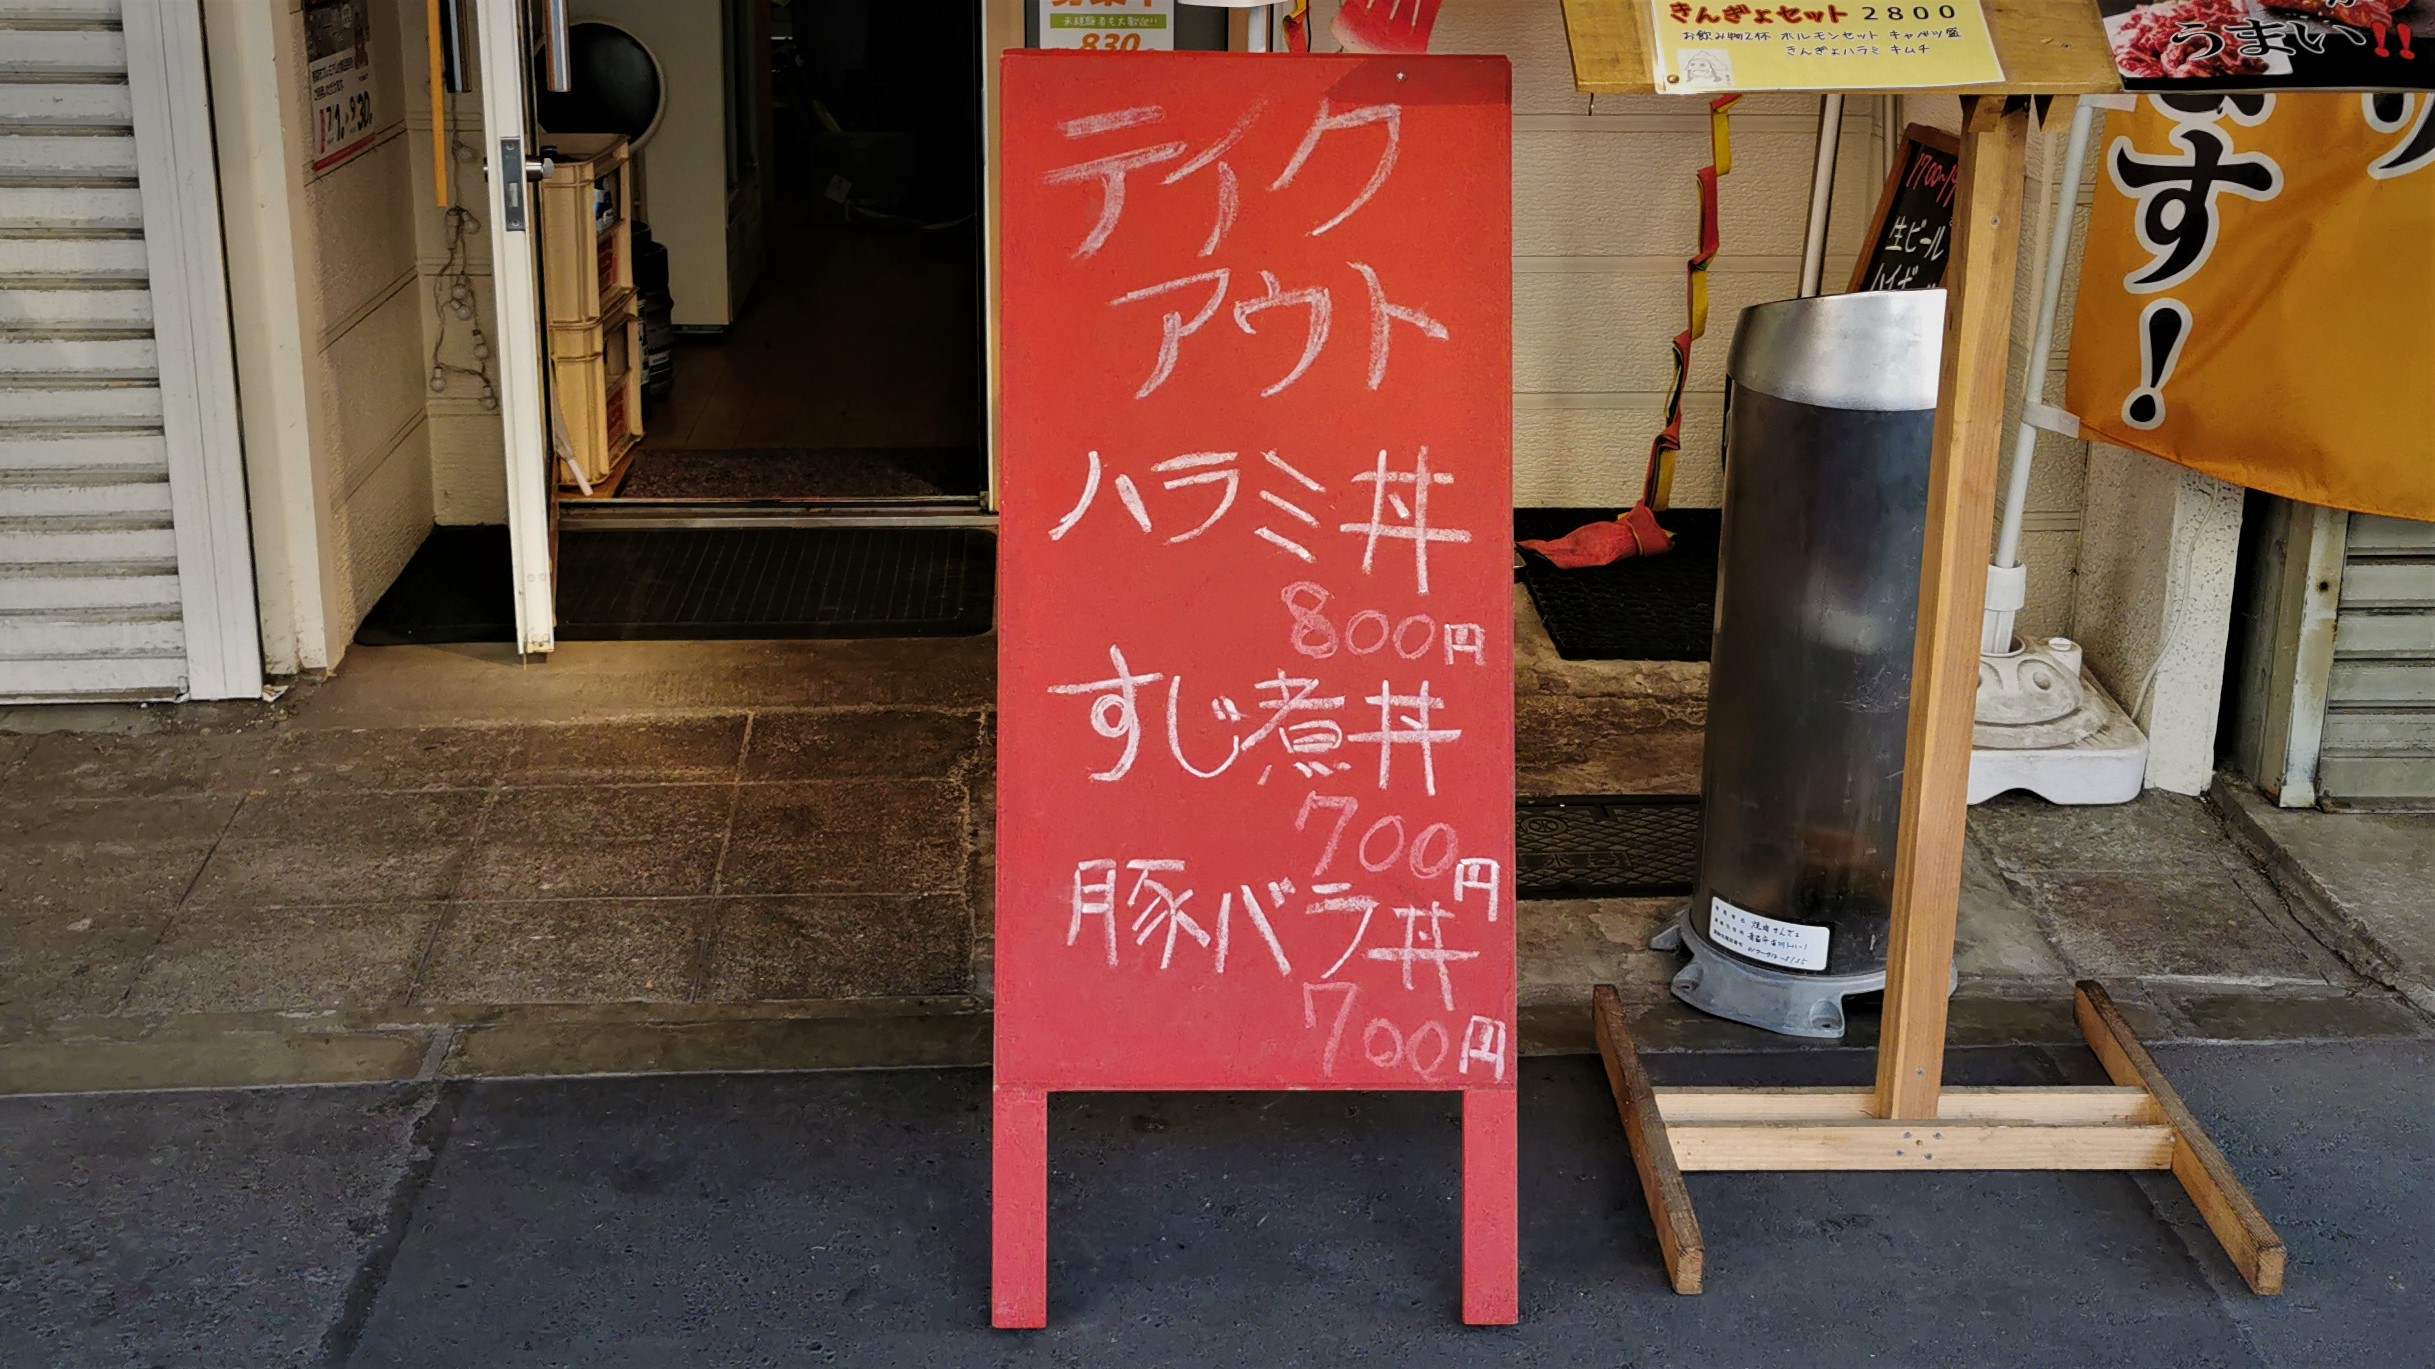 テイク
アウト
ハラミ丼
800円
すじ煮丼
700円
豚バラ丼
700円
きんぎょセット 2800
お飲み物2杯 ホルモンセット キャベツ盛
きんぎょハラミ キムチ
うまい!!
す!
り
生ビール
830